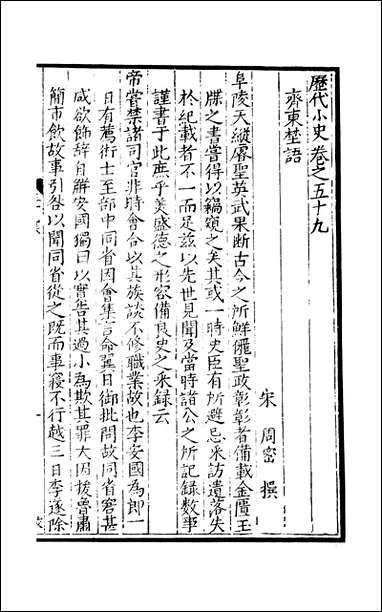 歷代小史卷之五十九
齊東埜語
宋 周密 撰
阜陵天縱睿聖英武果斷古今之所鮮儷聖政彰彰者備載金匱玉
牒之書嘗得以竊窺之矣其或一時史臣有所避忌采訪遺落失
於紀載者不一而足茲以先世見聞及當時諸公之所記錄數事
謹書于此庶乎美盛德之形容備良史之采錄云
帝嘗禁諸司官非時會合以其族談不修職業故也李安國為郎一
日有薦術士至部中同省因會集言命翼日御批問故同省窘甚
咸欲飾辭自解安國獨曰以實告其過小為欺其罪大因援魯肅
簡市飲故事引咎以聞同省從之既而事寢不行越三日李遂除